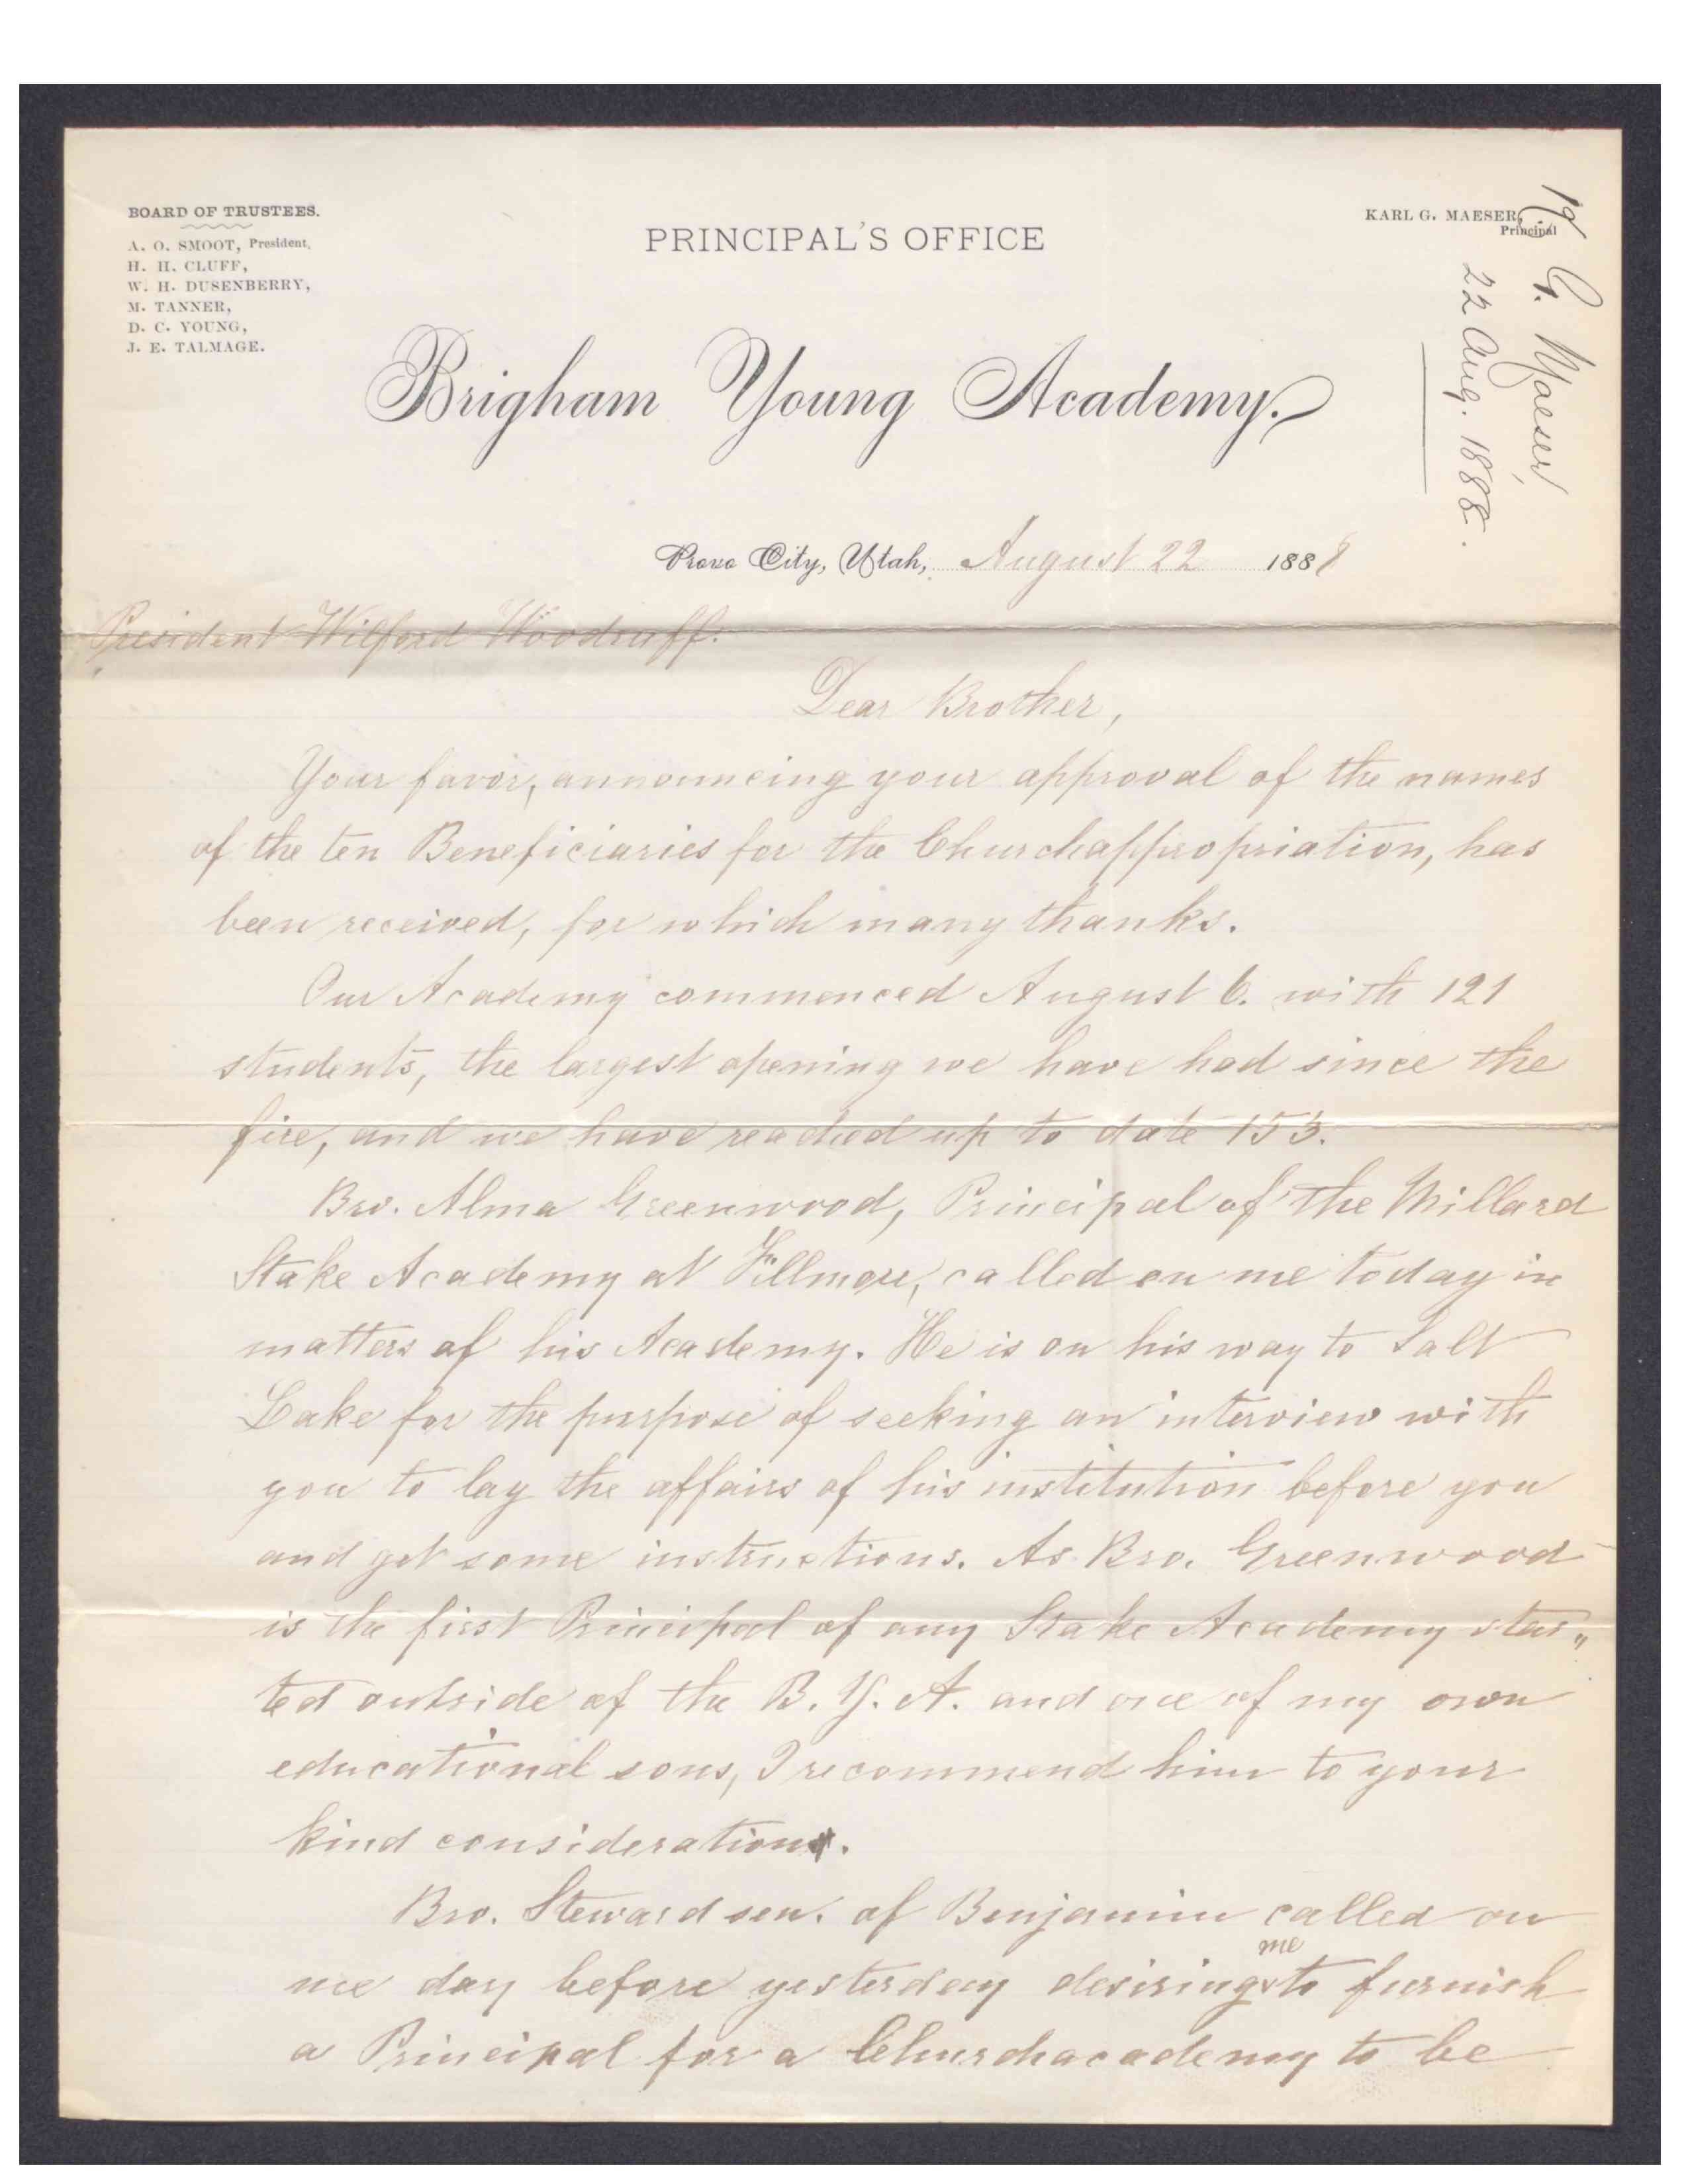 BOARD OF TRUSTEES.
A. O. SMOOT, President,
H. H. CLUFF,
W. H. DUSENBERRY,
M. TANNER,
D. C. YOUNG,
J. E. TALMAGE.
PRINCIPAL'S OFFICE
KARL G. MAESER,
Principal
K. G. Maeser,
22 Aug. 1888.
Brigham Young Academy.
Provo City, Utah, August 22 1888
President Wilford Woodruff.
Dear Brother,
Your favor, announcing your approval of the names
of the ten Beneficiaries for the Churchappropriation, has
been received, for which many thanks.
Our Academy commenced August 6. with 121
students, the largest opening we have had since the
fire, and we have reached up to date 153.
Bro. Alma Greenwood, Principal of the Millard
Stake Academy at Fillmore, called on me today in
matters of his Academy. He is on his way to Salt
Lake for the purpose of seeking an interview with
you to lay the affairs of his institution before you
and get some instructions. As Bro. Greenwood
is the first Principal of any Stake Academy star„
ted outside of the B. Y. A. and one of my own
educational sons, I recommend him to your
kind consideration.
Bro. Steward sen. of Benjamin called on
me day before yesterday desiring me to furnish
a Principal for a Churchacademy to be